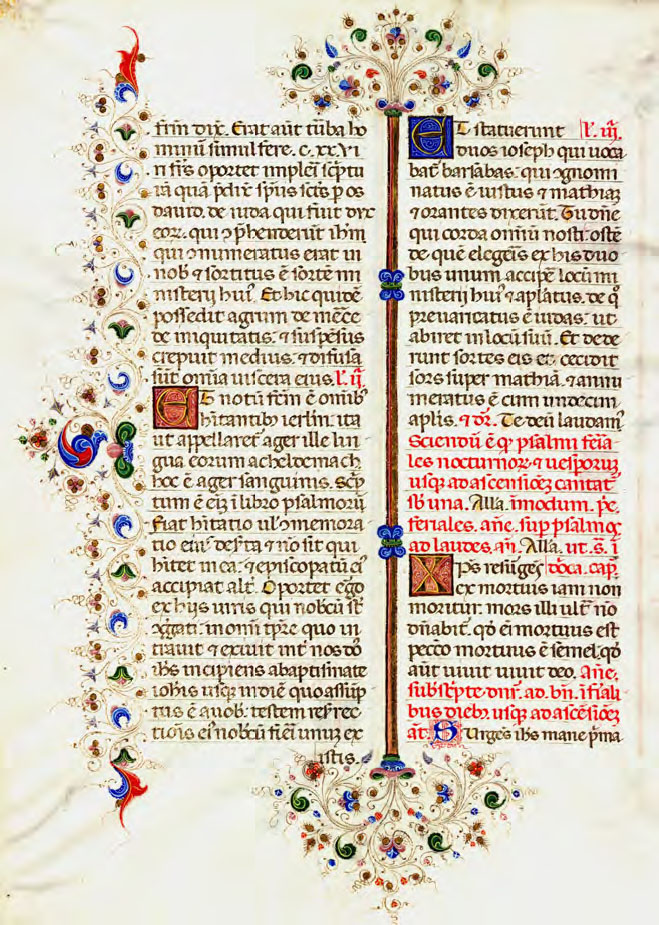 frm̄ dix̄. Erat aūt tūba ho
minū simul fere. c. xx. Vi
ri frs̄ oportet impleri sc̄ptu
rā quā p̄dix̄ sp̄us sc̄s p̄ os
dauid. de iuda qui fuit dux
eoꝝ. qui ꝯp̄henderūt ih̄m
qui ꝯnumeratus erat in
nob̄ ⁊ sortitus ē sortē mi
nisterij huiꝰ. Et hic quidē
possedit agrum de mēce
de iniquitatis. ⁊ suspēsus
crepuit medius. ⁊ difusa
sūt omīa uiscera eius. l̄. ij.
Et notū fcm̄ ē om̄ib
h̄itantibꝰ ierl̄m. ita
ut appellaret̄ ager ille lin
gua eorum acheldemach
hoc ē ager sanguinis. Sc̄p
tum ē eī ī libro psalmorū
Fiat h̄itatio ulꝰ ꝯmemora
tio eiꝰ desr̄ta ⁊ nō sit qui
h̄itet in ea. ⁊ episcopatū eiꝰ
accipiat alt̄. Oportet ḡo
ex hijs uiris qui nobcū st̄
ꝯgati. in om̄i tp̄re quo in
trauit ⁊ exiuit int̄ nos dō
ih̄s incipiens abaptismate
ioh̄is usqꝫ in diē quo assūp
tus ē a nob̄. testem resr̄rec
tiōis eiꝰ nobcū fieri unuꝫ ex
istis.
Et statuerunt l̄. iij.
duos ioseph qui uoca
bat̄ barsabas. qui ꝯgnomi
natus ē iustus ⁊ mathiaꝫ
⁊ orantes dixerūt. Tu dn̄e
qui corda omiū nosti. ostē
de quē elegeris ex his duo
bus unum. accipe locū mi
nisterij huiꝰ ⁊ ap̄latus. de q̊
preuaricatus ē iudas. ut
abiret in locū suū. Et dede
runt sortes eis et. cecidit
sors super mathiā. ⁊ annu
meratus ē cum undecim
ap̄lis. ⁊ dr̄. Te deū laudamꝰ
Sciendū ē qꝫ psalmi feria
les nocturnoꝝ ⁊ uesporuꝫ
usqꝫ ad ascensiōeꝫ cantāt̄
sb̄ una. Alla. in modum. pe.
feriales. ane. sup psalmos
ad laudes. añ. Alla. ut. s. ī
Xp̄s resūges dōca. cap.
ex mortuis iam non
moritur. mors illi ult̄ nō
dn̄abit̄. qd̄ ei mortuus est
pecc̄o mortuus ē semel. qd̄
aūt uiuit uiuit deo. Ane.
subsc̄pte dn̄r. ad. bn̄. ī fiali
bus diebꝫ. usqꝫ ad ascēsiōeꝫ
at. Surgēs ih̄s mane p̄ma